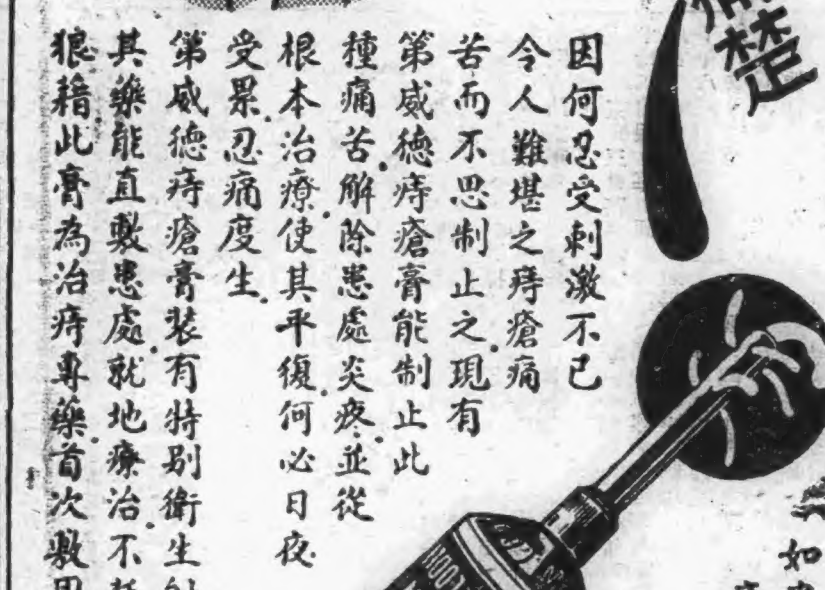 楚
因何忍受刺激不已
令人難堪之痔瘡痛
苦而不思制止之.現有
第威德痔瘡膏能制止此
種痛苦.解除患處炎疼.並從
根本治療.使其平復.何必日夜
受累.忍痛度生.
第威德痔瘡膏裝有特別衛生
其藥能直敷患處.就地療治.不
狼藉此膏為治痔專藥.首次敷
如